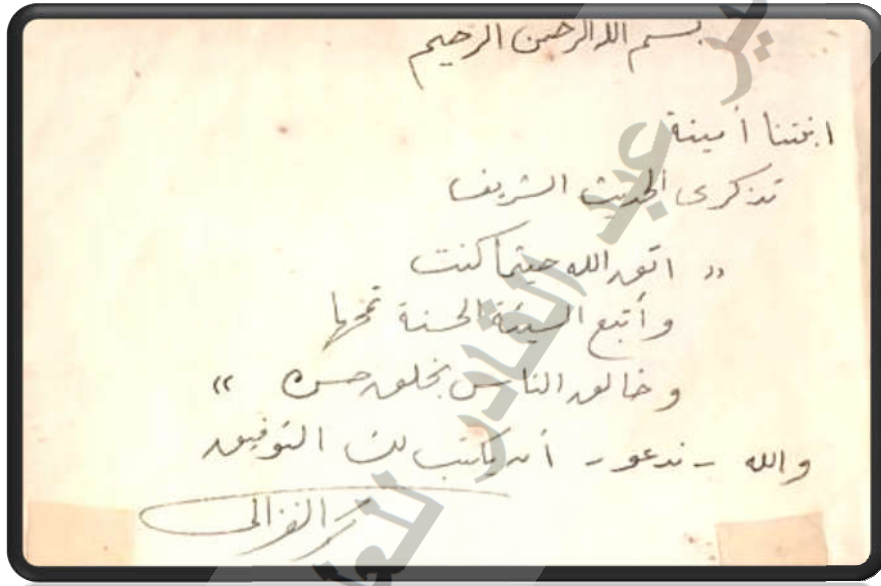 بسم الله الرحمن الرحيم
ابنتنا أمينة
تذكرى الحديث الشريف
" اتق الله حيثما كنت
وأتبع السيئة الحسنة تمحها
وخالق الناس بخلق حسن "
والله - ندعو - أن يكتب لك التوفيق
محمد الغزالى
عبد القادر